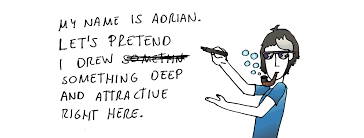 MY NAME IS ADRIAN.
LET'S PRETEND
I DREW SOMETHIN
SOMETHING DEEP
AND ATTRACTIVE
RIGHT HERE.